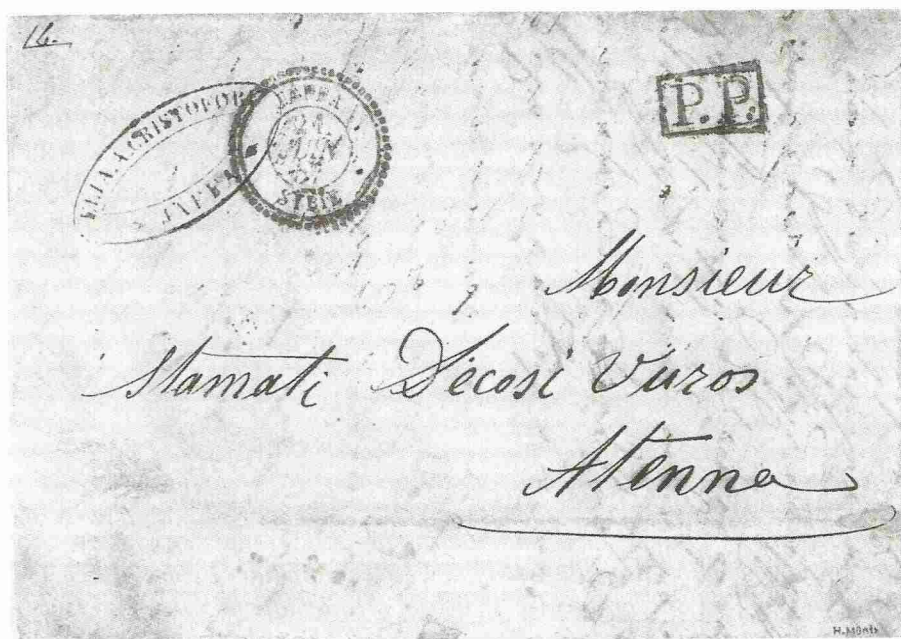 16.
ELIA A. CRISTOFORI
JAFFA
JAFFA
21
JUIN
SYRIE
P.P.
Monsieur
Stamati Décosi Vuros
Atenna